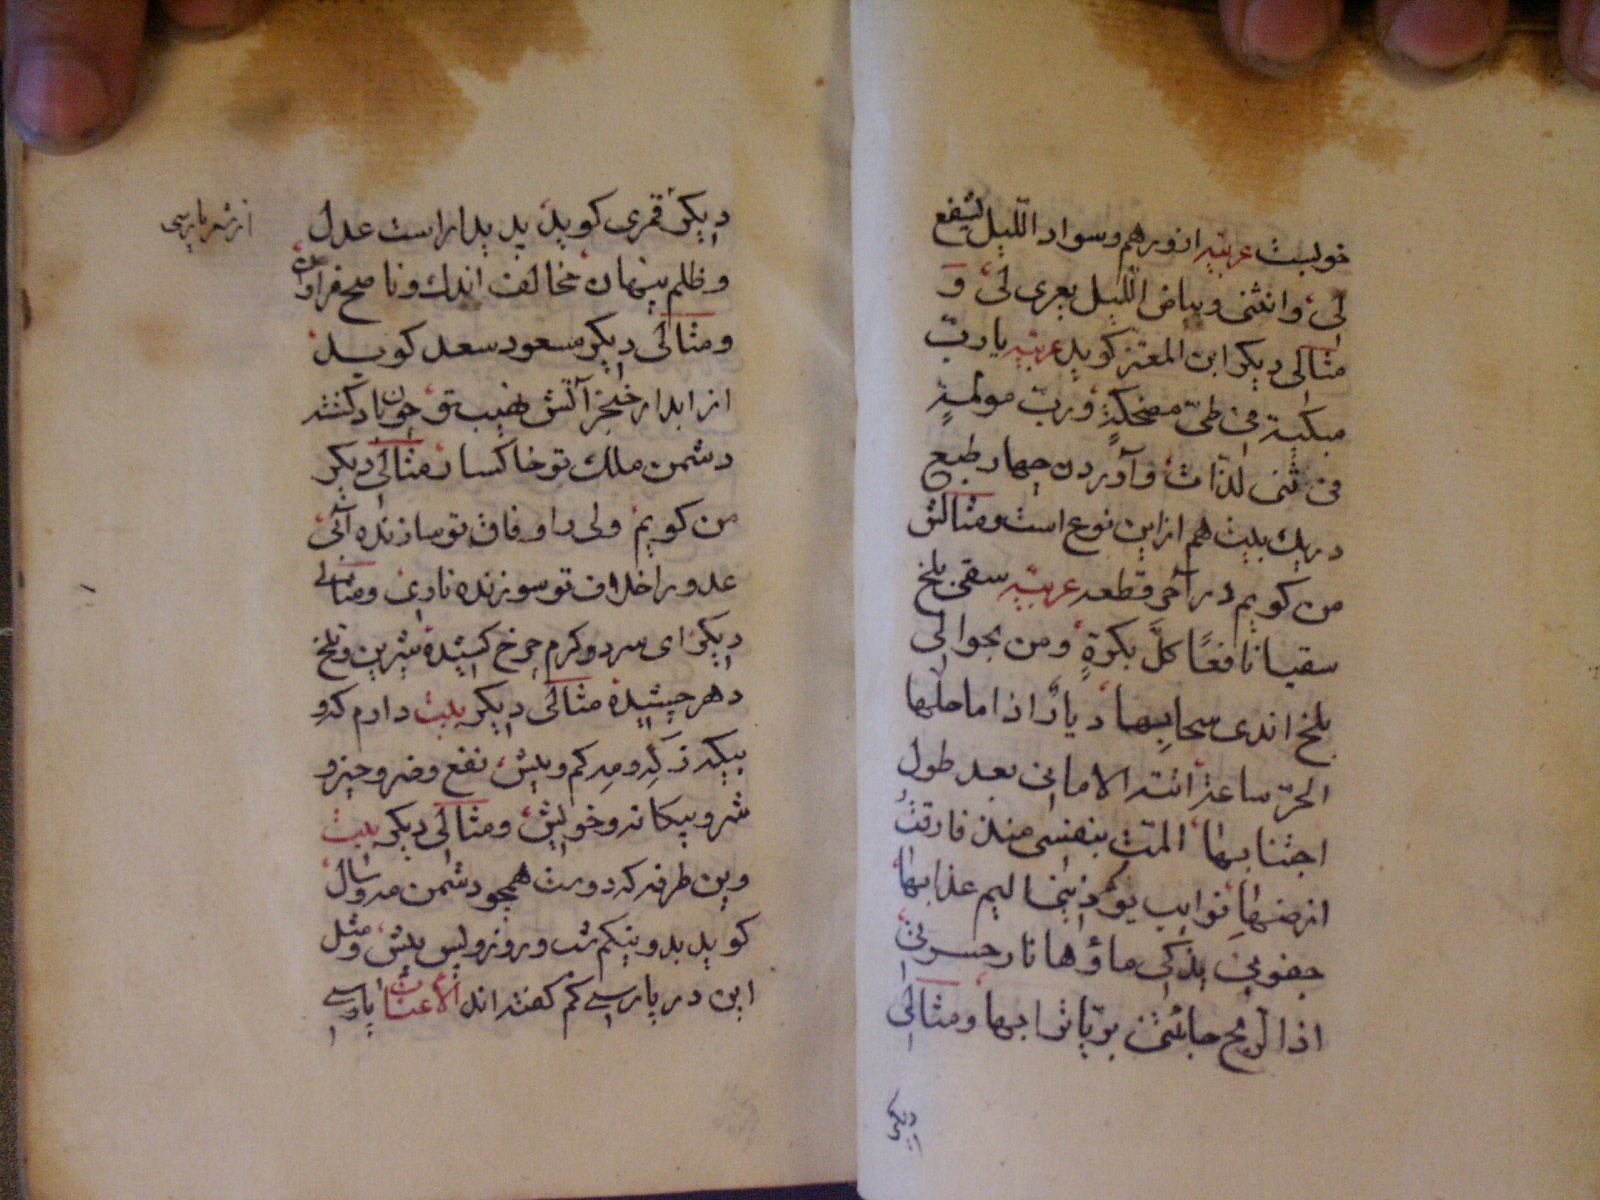 خوبست عربیّه ازورهم وسواد اللّیل یشفع
لی وانثنی وبیاض اللّیل یغری لی و
مثالی دیکر ابن المعتز کوید عربیّه یا ربّ
مبکیة فی طیّ مضحکةٍ وربّ مولمةٍ
فی ثنی لذّات وآوردن جهار طبع
دریك بیت هم ازاین نوع است ومثالش
من کویم در آخر قطعه عربیّه سقی بلخ
سقیا نافعًا کلّ بکرةٍ ومن بحوالی
بلخ اندی سحابها دیارٌ اذا ما حلّها
الحرّ ساعة اتته الامانی بعد طول
اجتنابها المّت بنفسی منذ فارقت
ارضها نوایب یؤذینا الیم عذابها
جفونی یذکی ماؤها نار حسرتی
اذا الرّیح جائتنی بریّا ترابها ومثالی
دیکر
دیکر قمری کوید بدیدار است عدل
وظلم پنهان مخالف اندك وناصح فراوان
ومثالی دیکر مسعود سعد کوید
از ابدار خنجر آتش نهیب تو جون باد کشته
دشمن ملك تو خاکسار مثالی دیکر
من کویم ولی را وفاق تو سازنده آبی
عدو را خلاف تو سوزنده ناری ومثالی
دیکر ای سرد وکرم جرخ کشیده شیرین وتلخ
دهر جشیده مثالی دیکر بیت دارم کدو
بیکدز کِه ومِه کم وبیش نفع وضر وخیر و
شر وبیکانه وخویش ومثالی دیکر بیت
وین طرفه که دوست همجو دشمن مه وسال
کوید بد ونیکم شب وروز وپس وپیش ومثل
این در پارسی کم کفته اند الاعنات پارسی
از شعر پارسی